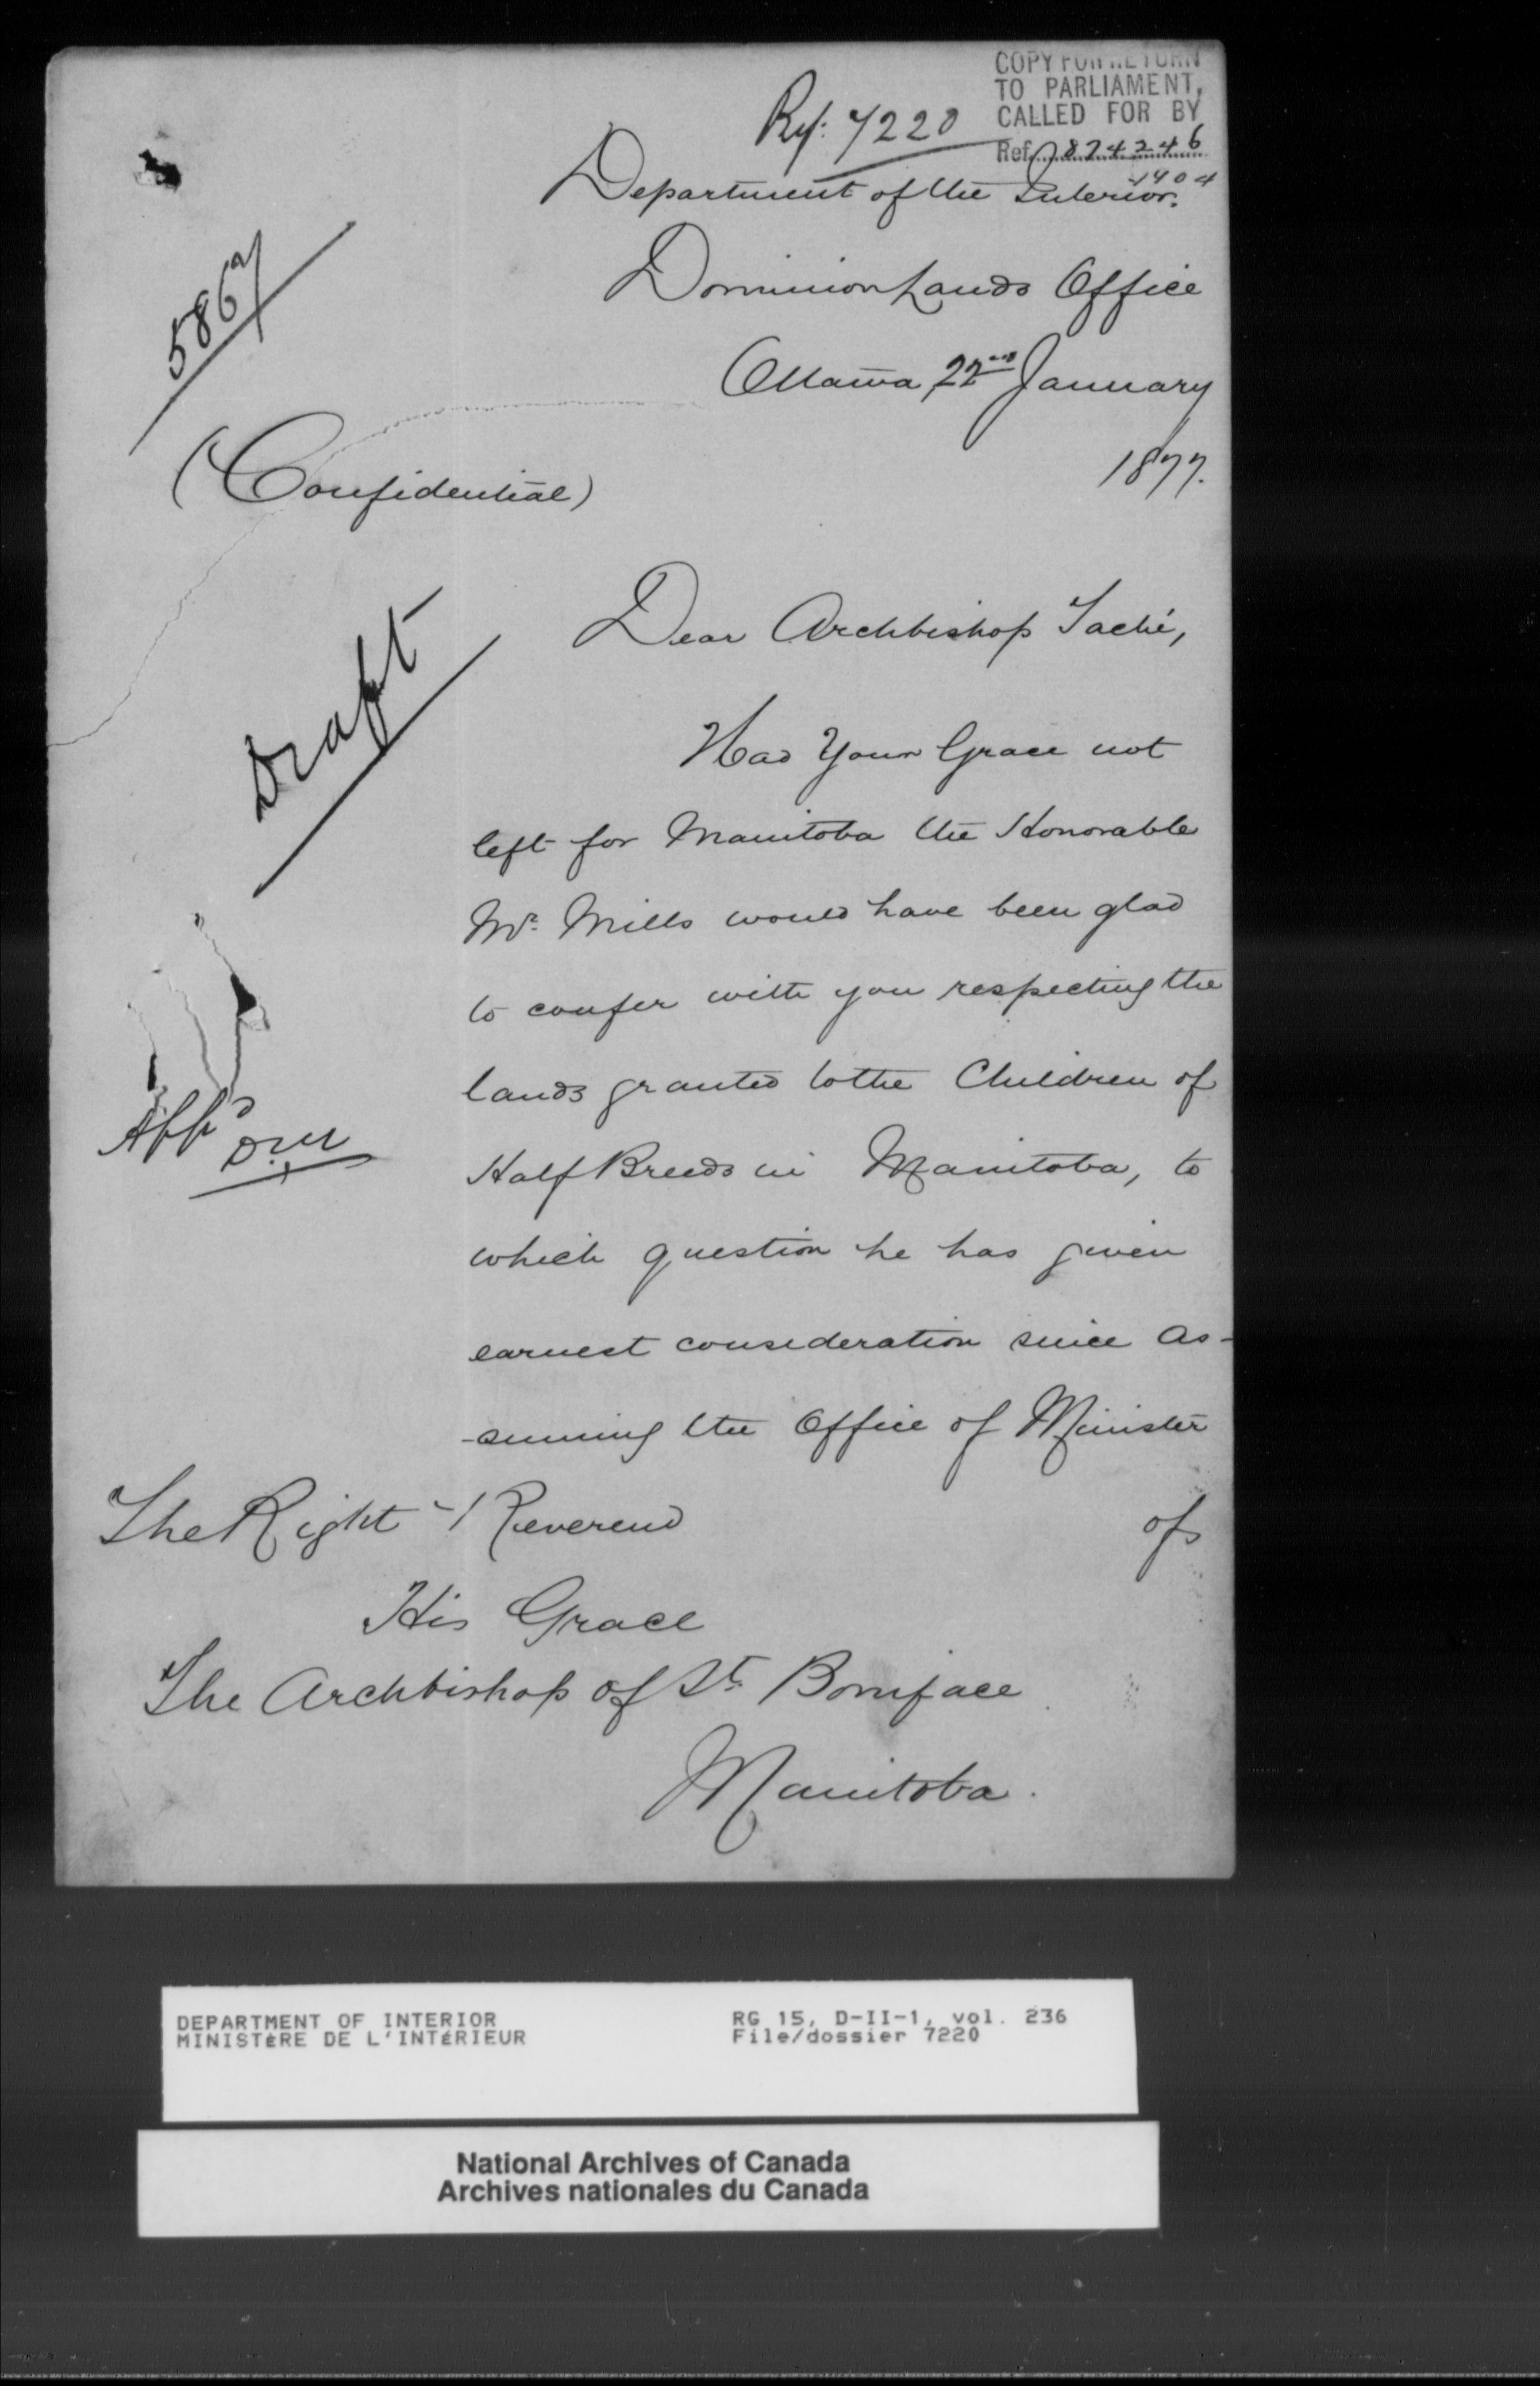 COPY FOR RETURN
TO PARLIAMENT,
CALLED FOR BY
Ref. 874246
1904
Ref: 7220
Department of the Interior.
Dominion Lands Office
5867
Ottawa 22nd January
1877.
(Confidential)
Draft
Dear Archbishop Taché,
Had Your Grace not
left for Manitoba the Honorable
Mr. Mills would have been glad
to confer with you respecting the
lands granted to the Children of
App'd
D.M
Half Breeds in Manitoba, to
which question he has given
earnest consideration since as-
-suming the Office of Minister
of
The Right Reverend
His Grace
The Archbishop of St. Boniface
Manitoba.
DEPARTMENT OF INTERIOR
MINISTÈRE DE L'INTÉRIEUR
RG 15, D-II-1, vol. 236
File/dossier 7220
National Archives of Canada
Archives nationales du Canada